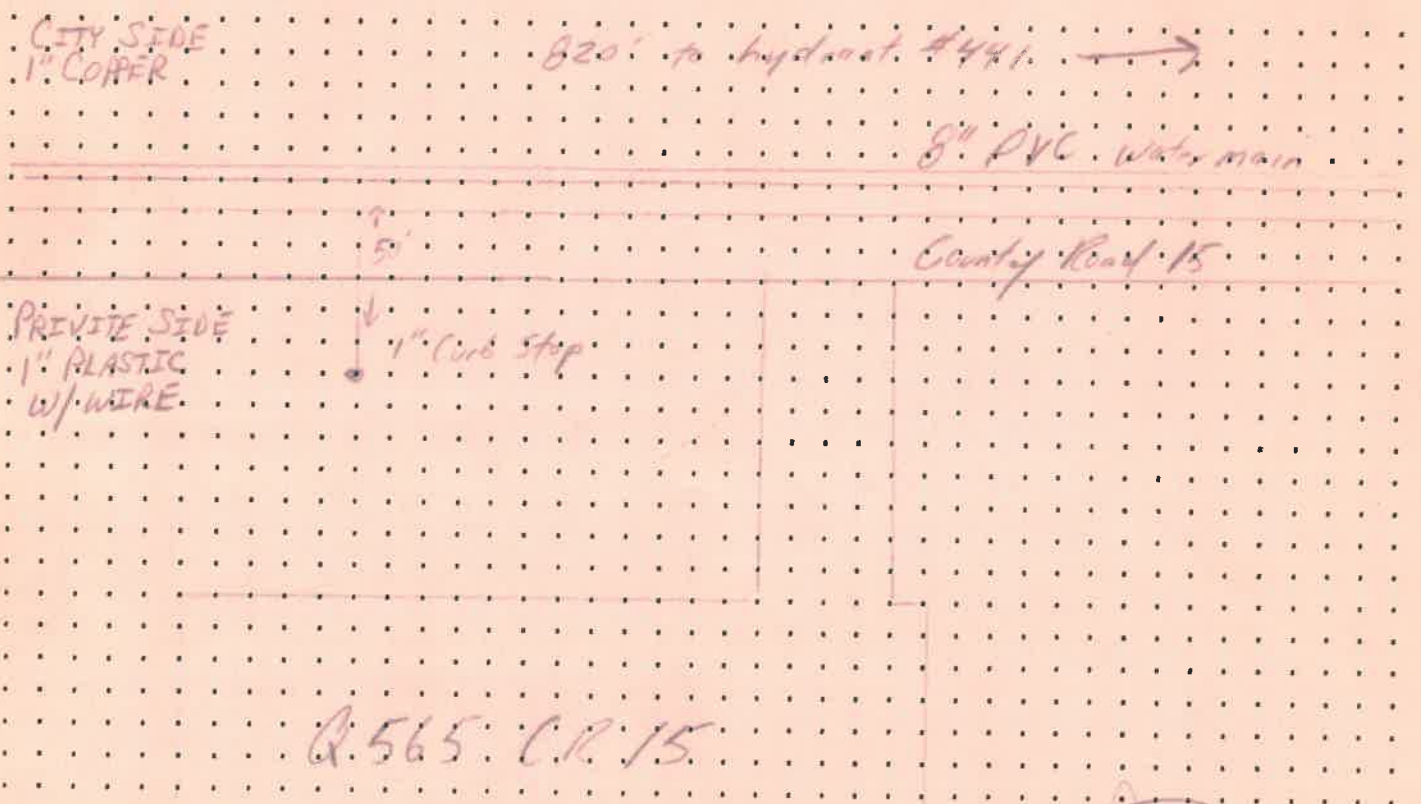 CITY SIDE
1" COPPER
820' to hydrant #441
8" PVC water main
50'
County Road 15
PRIVITE SIDE
1" PLASTIC
W/ WIRE
1" Curb Stop
Q565 CR 15